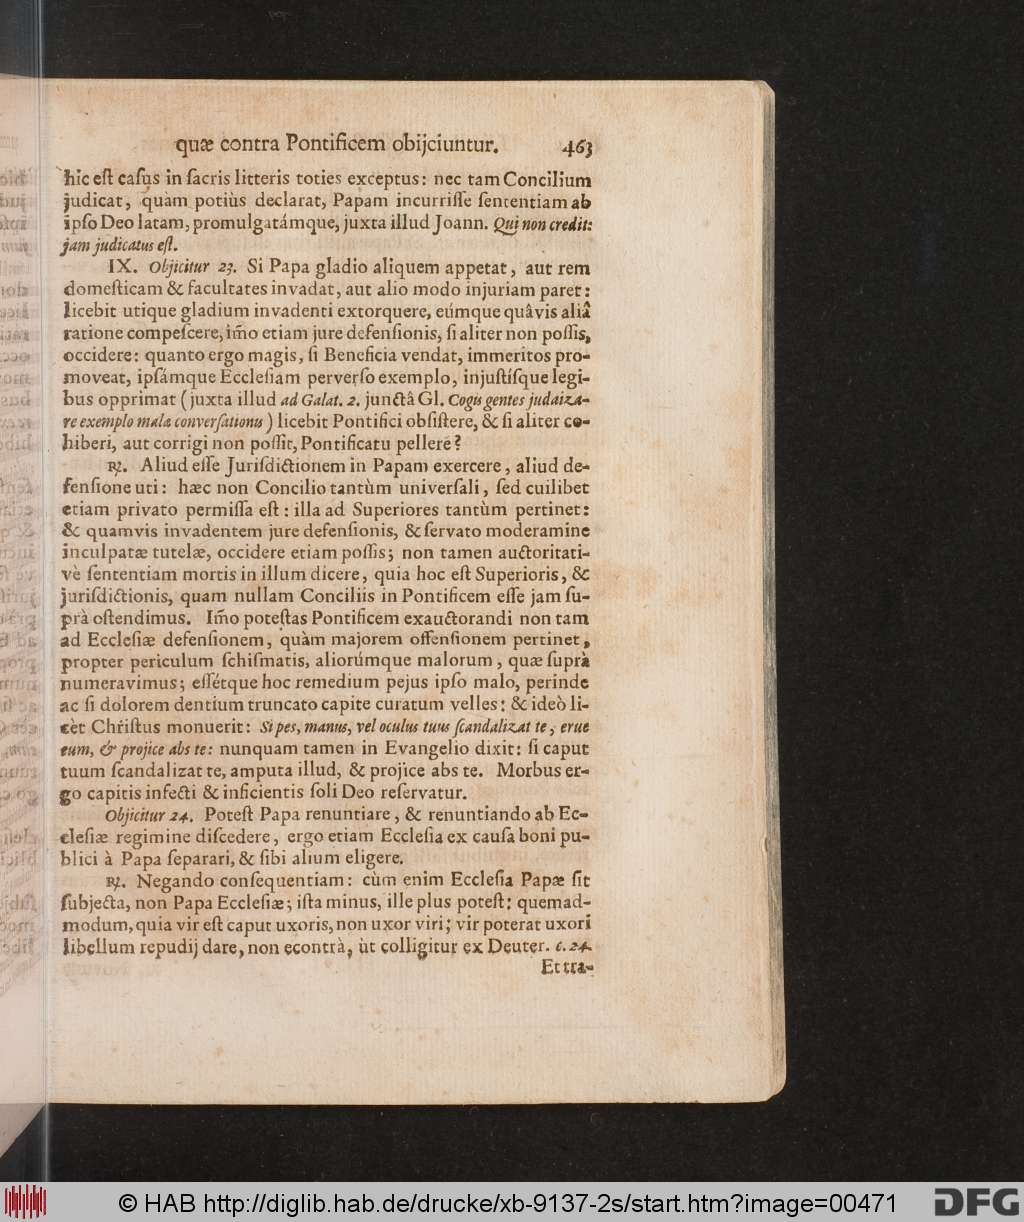 quæ contra Pontificem obijciuntur. 463
hic eſt caſus in ſacris litteris toties exceptus: nec tam Concilium
judicat, quàm potiùs declarat, Papam incurriſſe ſententiam ab
ipſo Deo latam, promulgatámque, juxta illud Joann. Qui non credit:
jam judicatus eſt.
IX. Objicitur 23. Si Papa gladio aliquem appetat, aut rem
domeſticam & facultates invadat, aut alio modo injuriam paret:
licebit utique gladium invadenti extorquere, eúmque quâvis aliâ
ratione compeſcere, im̃o etiam jure defenſionis, ſi aliter non poſſis,
occidere: quanto ergo magis, ſi Beneficia vendat, immeritos pro-
moveat, ipſámque Eccleſiam perverſo exemplo, injuſtíſque legi-
bus opprimat (juxta illud ad Galat. 2. junctâ Gl. Cogis gentes judaiza-
re exemplo mala converſationis) licebit Pontifici obſiſtere, & ſi aliter co-
hiberi, aut corrigi non poſſit, Pontificatu pellere?
℟. Aliud eſſe Jurisdictionem in Papam exercere, aliud de-
fenſione uti: hæc non Concilio tantùm univerſali, ſed cuilibet
etiam privato permiſſa eſt: illa ad Superiores tantùm pertinet:
& quamvis invadentem jure defenſionis, & ſervato moderamine
inculpatæ tutelæ, occidere etiam poſſis; non tamen auctoritati-
vè ſententiam mortis in illum dicere, quia hoc eſt Superioris, &
jurisdictionis, quam nullam Conciliis in Pontificem eſſe jam ſu-
prà oſtendimus. Im̃o poteſtas Pontificem exauctorandi non tam
ad Eccleſiæ defenſionem, quàm majorem offenſionem pertinet,
propter periculum ſchiſmatis, aliorúmque malorum, quæ ſuprà
numeravimus; eſſétque hoc remedium pejus ipſo malo, perinde
ac ſi dolorem dentium truncato capite curatum velles: & ideò li-
cèt Chriſtus monuerit: Si pes, manus, vel oculus tuus ſcandalizat te, erue
eum, & projice abs te: nunquam tamen in Evangelio dixit: ſi caput
tuum ſcandalizat te, amputa illud, & projice abs te. Morbus er-
go capitis infecti & inficientis ſoli Deo reſervatur.
Objicitur 24. Poteſt Papa renuntiare, & renuntiando ab Ec-
cleſiæ regimine diſcedere, ergo etiam Eccleſia ex cauſa boni pu-
blici à Papa ſeparari, & ſibi alium eligere.
℟. Negando conſequentiam: cùm enim Eccleſia Papæ ſit
ſubjecta, non Papa Eccleſiæ; iſta minus, ille plus poteſt: quemad-
modum, quia vir eſt caput uxoris, non uxor viri; vir poterat uxori
libellum repudij dare, non econtrà, ùt colligitur ex Deuter. c. 24.
Et tra-
© HAB http://diglib.hab.de/drucke/xb-9137-2s/start.htm?image=00471
DFG